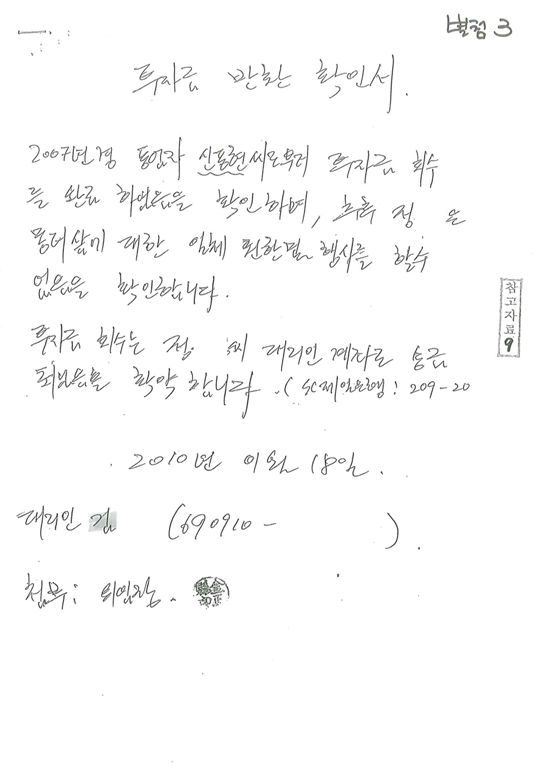 별첨 3
투자금 반환 확인서.
2007년경 동업자 신표현씨로부터 투자금 회수
를 완료 하였음을 확인하며, 추후 정 은
퐁더살미 대한 일체 권한 행사를 할수
없음을 확인합니다.
참고자료 9
투자금 회수는 정. 씨 대리인 계좌로 송금
되었음을 확약 합니다. (SC제일은행: 209-20
2010년 이월 18일.
대리인 김 (690910- ).
첨부: 위임장.